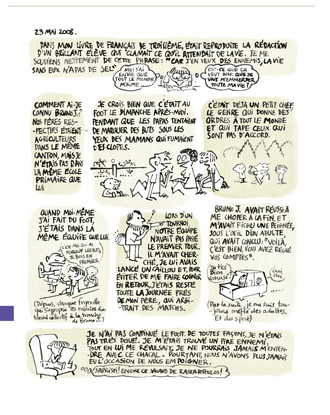 23 MAI 2008.
DANS MON LIVRE DE FRANÇAIS DE TROISIÈME, ÉTAIT REPRODUITE LA RÉDACTION
D'UN BRILLANT ÉLÈVE QUI CLAMAIT CE QU'IL ATTENDAIT DE LA VIE. JE ME
SOUVIENS NETTEMENT DE CETTE PHRASE: "CAR J'EN VEUX DES ENNEMIS, LA VIE
SANS EUX N'A PAS DE SEL"
MOI J'AI
ENVIE QUE
TOUT LE MONDE
M'AIME.
EST-CE QUE ÇA
VEUT DIRE QUE JE
VAIS M'EMMERDER
TOUTE MA VIE?
COMMENT AI-JE
CONNU BRUNO J.?
NOS PÈRES RES-
PECTIFS ÉTAIENT
AGRICULTEURS
DANS LE MÊME
CANTON, MAIS JE
N'ÉTAIS PAS DANS
LA MÊME ÉCOLE
PRIMAIRE QUE
LUI
JE CROIS BIEN QUE C'ÉTAIT AU
FOOT LE DIMANCHE APRÈS-MIDI.
PENDANT QUE LES PAPAS TENTAIENT
DE MARQUER DES BUTS SOUS LES
YEUX DES MAMANS QUI FUMAIENT
DES CLOPES.
C'ÉTAIT DÉJÀ UN PETIT CHEF,
LE GENRE QUI DONNE DES
ORDRES À TOUT LE MONDE
ET QUI TAPE CEUX QUI
SONT PAS D'ACCORD.
QUAND MOI-MÊME
J'AI FAIT DU FOOT,
J'ÉTAIS DANS LA
MÊME ÉQUIPE QUE LUI.
(Depuis, chaque fripouille
LORS D'UN
TOURNOI,
NOTRE ÉQUIPE
N'AVAIT PAS PASSÉ
LE PREMIER TOUR.
IL M'AVAIT CHER-
CHÉ, JE LUI AVAIS
LANCÉ UN CAILLOU ET, POUR
ÉVITER DE ME FAIRE COGNER
EN RETOUR, J'ÉTAIS RESTÉ
TOUTE LA JOURNÉE PRÈS
DE MON PÈRE, QUI ARBI-
TRAIT DES MATCHS.
BRUNO J. AVAIT RÉUSSI À
ME CHOPER À LA FIN, ET
M'AVAIT FICHU UNE PEIGNÉE,
SOUS L'OEIL D'UN ADULTE
QUI AVAIT CONCLU: "VOILÀ,
C'EST BIEN, VOUS AVEZ RÉGLÉ
VOS COMPTES".
(Par la suite, je me suis tou-
jours méfié des adultes.
Et du sport)
JE N'AI PAS CONTINUÉ LE FOOT. DE TOUTES FAÇONS, JE N'ÉTAIS
PAS TRÈS DOUÉ. JE M'ÉTAIS TROUVÉ UN PIRE ENNEMI.
TOUT EN LUI ME RÉVULSAIT, JE NE POURRAIS JAMAIS M'ENTEN-
DRE AVEC CE CHACAL. POURTANT, NOUS N'AVONS PLUS JAMAIS
EU L'OCCASION DE NOUS EMPOIGNER.
SAPRISTI! ENCORE CE SAGOUIN DE RASTAPOPOULOS!